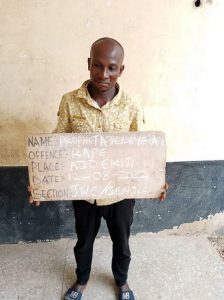 NAME: PROPHET ADELEYE A
OFFENCE: RAPE
PLACE: ADO EKITI
DATE: 12-08-2022
SECTION: JWC/GENDER